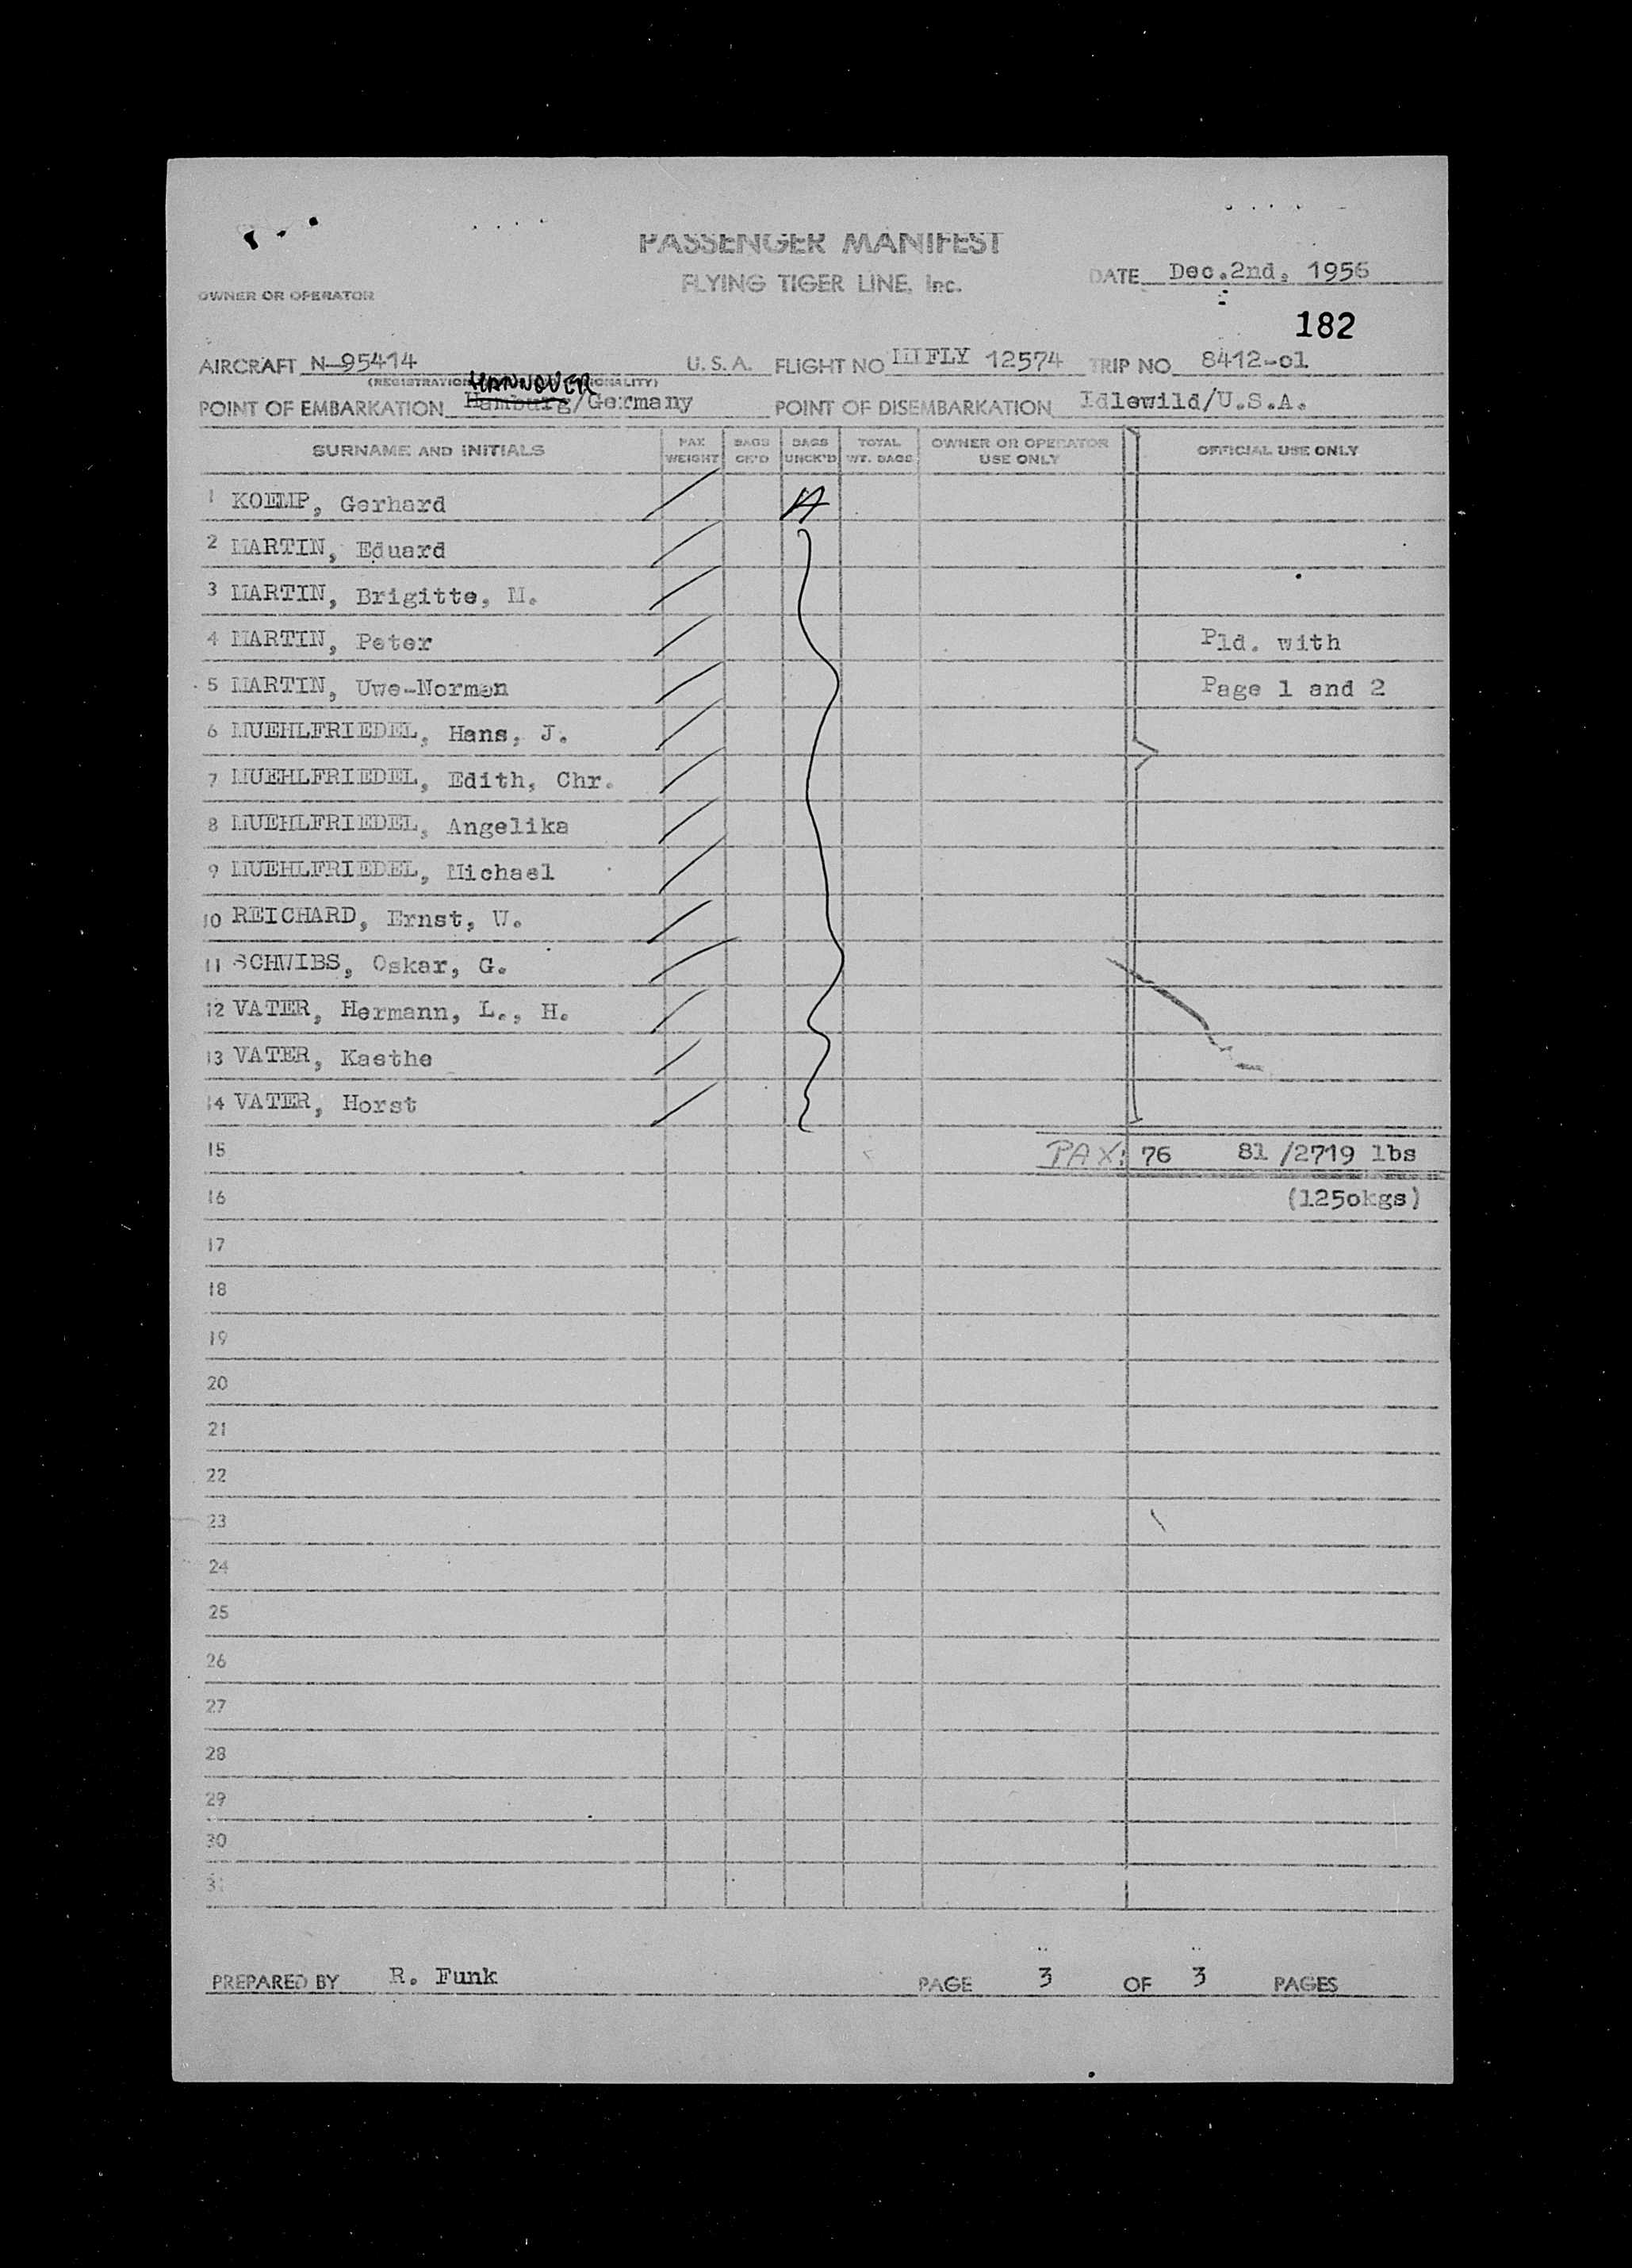 PASSENGER MANIFEST
FLYING TIGER LINE, Inc.
DATE Dec.2nd, 1956
OWNER OR OPERATOR
182
AIRCRAFT N-95414 U.S.A. FLIGHT NO MIFLY 12574 TRIP NO 8412-o1
HANNOVER
POINT OF EMBARKATION Hamburg/Germany POINT OF DISEMBARKATION Idlewild/U.S.A.
SURNAME AND INITIALS PAX WEIGHT BAGS CK'D BAGS UNCK'D TOTAL WT. BAGS OWNER OR OPERATOR USE ONLY OFFICIAL USE ONLY
1 Gerhard
2 MARTIN, Eduard
3 MARTIN, Brigitte, M.
4 MARTIN, Peter Pld. with
5 MARTIN, Uwe-Norman Page 1 and 2
6 MUEHLFRIEDEL, Hans, J.
7 MUEHLFRIEDEL, Edith, Chr.
8 MUEHLFRIEDEL, Angelika
9 MUEHLFRIEDEL, Michael
10 REICHARD, Ernst, W.
11 SCHWIBS, Oskar, G.
12 VATER, Hermann, L., H.
13 VATER, Kaethe
14 VATER, Horst
15 PAX: 76 81 /2719 lbs
16 (125okgs)
17
18
19
20
21
22
23
24
25
26
27
28
29
30
31
PREPARED BY R. Funk PAGE 3 OF 3 PAGES